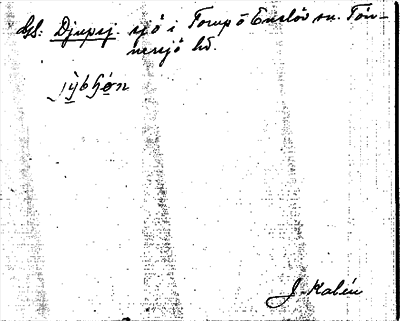 SS: Djupsj. sjö i Torup o Enslöv sn. Tön-
nersjö hd.
J. Kalén